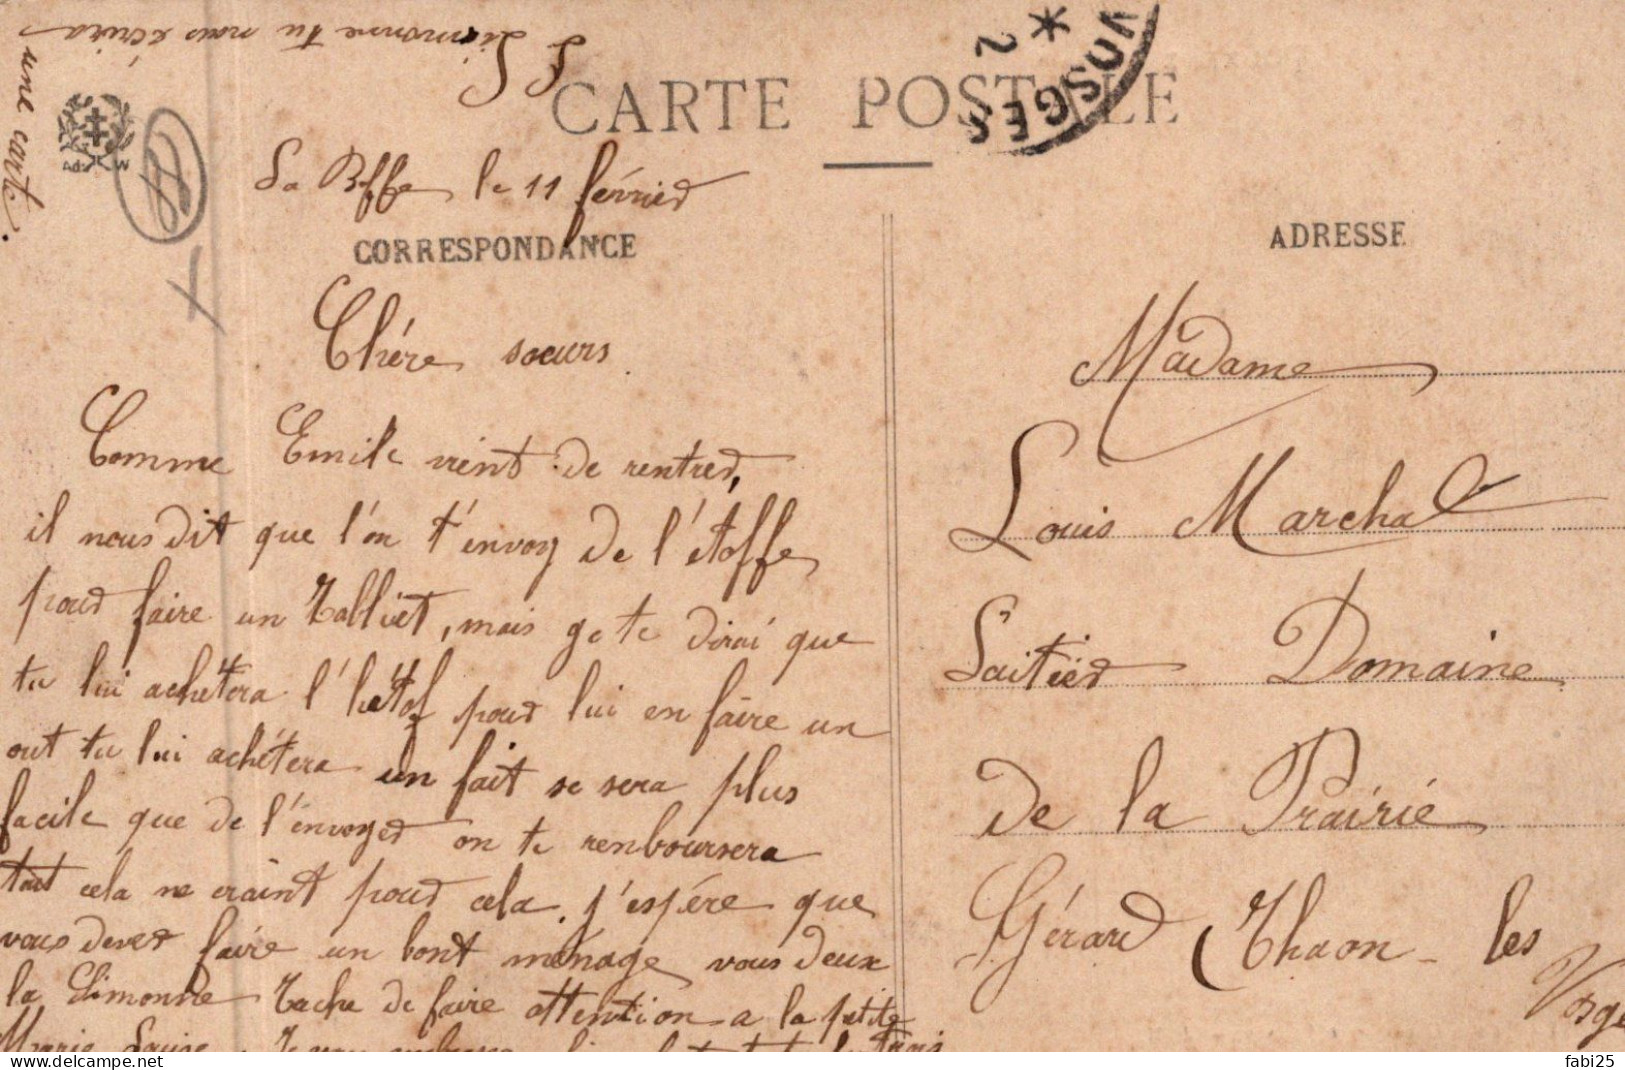 Simonne tu nous écrira
une carte.
CARTE POSTALE
VOSGES
2
Ad W
le 11 février
CORRESPONDANCE
ADRESSE
Chére sœurs
Comme Emile vient de rentrer,
il nous dit que l'on t'envoy de l'étoffe
pour faire un tablier, mais ge te dirai que
tu lui achétera l'hétof pour lui en faire un
out tu lui achétera un fait se sera plus
facile que de l'énvoyer on te renboursera
tout cela ne craint pour cela. j'espére que
vous dever faire un bont ménage vous deux
la Simonne tache de faire attention a la petite
Marie Louise
Madame
Louis Marchal
Laitier Domaine
de la Prairie
Gérard Thaon les
Vosges
fabi25